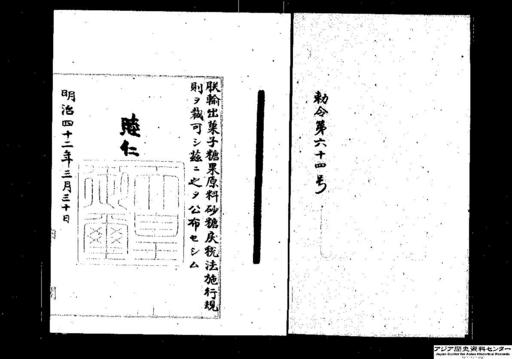 勅令第六十四号
朕輸出菓子糖果原料砂糖戻税法施行規
則ヲ裁可シ茲ニ之ヲ公布セシム
睦仁
天皇御璽
明治四十二年三月三十日
内閣
アジア歴史資料センター
Japan Center for Asian Historical Records